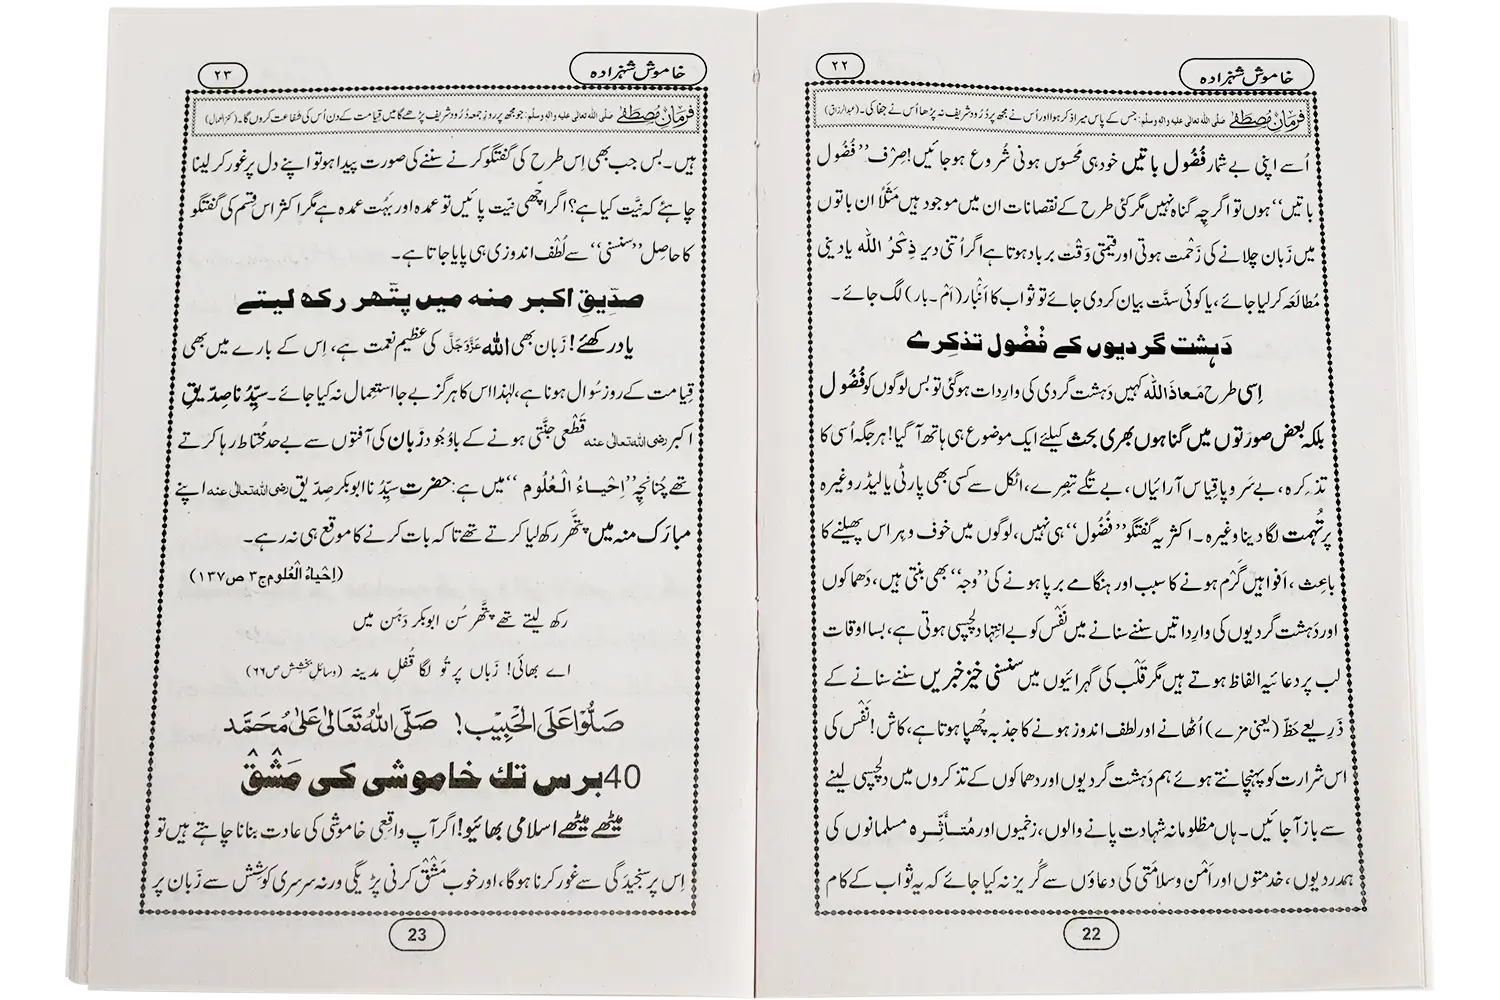 ۲۲
خاموش شہزادہ
فرمانِ مصطفٰے صلی اللہ تعالیٰ علیہ والہ وسلم: جس کے پاس میرا ذکر ہوا اور اُس نے مجھ پر دُرُود شریف نہ پڑھا اُس نے جفا کی۔ (عبدالرزاق)
اُسے اپنی بے شمار فُضُول باتیں خود ہی مَحسوس ہونی شُروع ہو جائیں! صِرْف ’’فُضُول
باتیں‘‘ ہوں تو اگرچِہ گناہ نہیں مگر کئی طرح کے نقصانات ان میں موجود ہیں مَثَلاً ان باتوں
میں زَبان چلانے کی زَحْمت ہوتی اور قیمتی وَقْت برباد ہوتا ہے اگر اُتنی دیر ذِکْرُ اللہ یا دینی
مُطالَعَہ کر لیا جائے، یا کوئی سنَّت بیان کردی جائے تو ثواب کا اَنْبار (اَم۔بار) لگ جائے۔
دَہشت گردیوں کے فُضُول تذکِرے
اِسی طرح مَعاذَاللہ کہیں دَہشت گردی کی وارِدات ہوگئی تو بس لوگوں کو فُضُول
بلکہ بعض صورَتوں میں گناہوں بھری بحث کیلئے ایک موضوع ہی ہاتھ آگیا! ہر جگہ اُسی کا
تذکِرہ، بے سَروپا قِیاس آرائیاں، بے تکے تبصِرے، اٹکل سے کسی بھی پارٹی یا لیڈر وغیرہ
پر تُہمت لگا دینا وغیرہ۔ اکثر یہ گفتگو ’’فُضُول‘‘ ہی نہیں، لوگوں میں خوف و ہراس پھیلنے کا
باعِث، اَفواہیں گَرْم ہونے کا سبب اور ہنگامے برپا ہونے کی ’’وجہ‘‘ بھی بنتی ہیں، دَھماکوں
اور دَہشت گردیوں کی وارِداتیں سننے سنانے میں نَفْس کو بے انتہا دلچسپی ہوتی ہے، بسا اوقات
لب پر دعائیہ الفاظ ہوتے ہیں مگر قَلْب کی گہرائیوں میں سنسنی خیز خبریں سننے سنانے کے
ذَرِیعے حَظّ (یعنی مزے) اُٹھانے اور لطف اندوز ہونے کا جذبہ چُھپا ہوتا ہے، کاش! نَفْس کی
اس شرارت کو پہچانتے ہوئے ہم دَہشت گردیوں اور دھماکوں کے تذکروں میں دلچسپی لینے
سے باز آجائیں۔ ہاں مظلومانہ شہادت پانے والوں، زَخمیوں اور مُتَأَثِّرہ مسلمانوں کی
ہمدردیوں، خدمتوں اور اَمْن و سلامَتی کی دعاؤں سے گُریز نہ کیا جائے کہ یہ ثواب کے کام
22
۲۳
خاموش شہزادہ
فرمانِ مصطفٰے صلی اللہ تعالیٰ علیہ والہ وسلم: جو مجھ پر روزِ جمعہ دُرُود شریف پڑھے گا میں قِیامت کے دن اُس کی شفاعت کروں گا۔ (کنز العمال)
ہیں۔ بس جب بھی اِس طرح کی گفتگو کرنے سننے کی صورت پیدا ہو تو اپنے دل پر غور کر لینا
چاہئے کہ نیَّت کیا ہے؟ اگر اچّھی نیّت پائیں تو عمدہ اور بَہُت عمدہ ہے مگر اکثر اس قِسْم کی گفتگو
کا حاصِل ’’سنسنی‘‘ سے لُطْف اندوزی ہی پایا جاتا ہے۔
صدّیقِ اکبر منہ میں پتَّھر رکھ لیتے
یاد رکھئے! زَبان بھی اللہ عَزَّوَجَلَّ کی عظیم نعمت ہے، اِس کے بارے میں بھی
قِیامت کے روز سُوال ہونا ہے، لہٰذا اس کا ہرگز بے جا استِعمال نہ کیا جائے۔ سیِّدُنا صِدّیقِ
اکبر رضی اللہ تعالیٰ عنہ قَطْعی جنَّتی ہونے کے باوُجُود زَبان کی آفتوں سے بے حد مُحتاط رہا کرتے
تھے چُنانچِہ ’’اِحْیاءُ الْعُلُوم‘‘ میں ہے: حضرتِ سیِّدُنا ابوبکر صِدّیق رضی اللہ تعالیٰ عنہ اپنے
مبارَک منہ میں پتَّھر رکھ لیا کرتے تھے تاکہ بات کرنے کا موقع ہی نہ رہے۔
(اِحْیاءُ الْعُلوم ج۳ ص۱۳۷)
رکھ لیتے تھے پتَّھر سُن ابوبکر دَہَن میں
اے بھائی! زَباں پر تُو لگا قُفلِ مدینہ (وسائلِ بخشش ص۶۶)
صَلُّوْا عَلَی الْحَبِیْب! صَلَّی اللہُ تَعَالٰی عَلٰی مُحَمَّد
40 برس تک خاموشی کی مَشْق
میٹھے میٹھے اسلامی بھائیو! اگر آپ واقِعی خاموشی کی عادت بنانا چاہتے ہیں تو
اِس پر سنجیدَگی سے غور کرنا ہوگا، اور خوب مَشْق کرنی پڑیگی ورنہ سرسری کوشِش سے زَبان پر
23